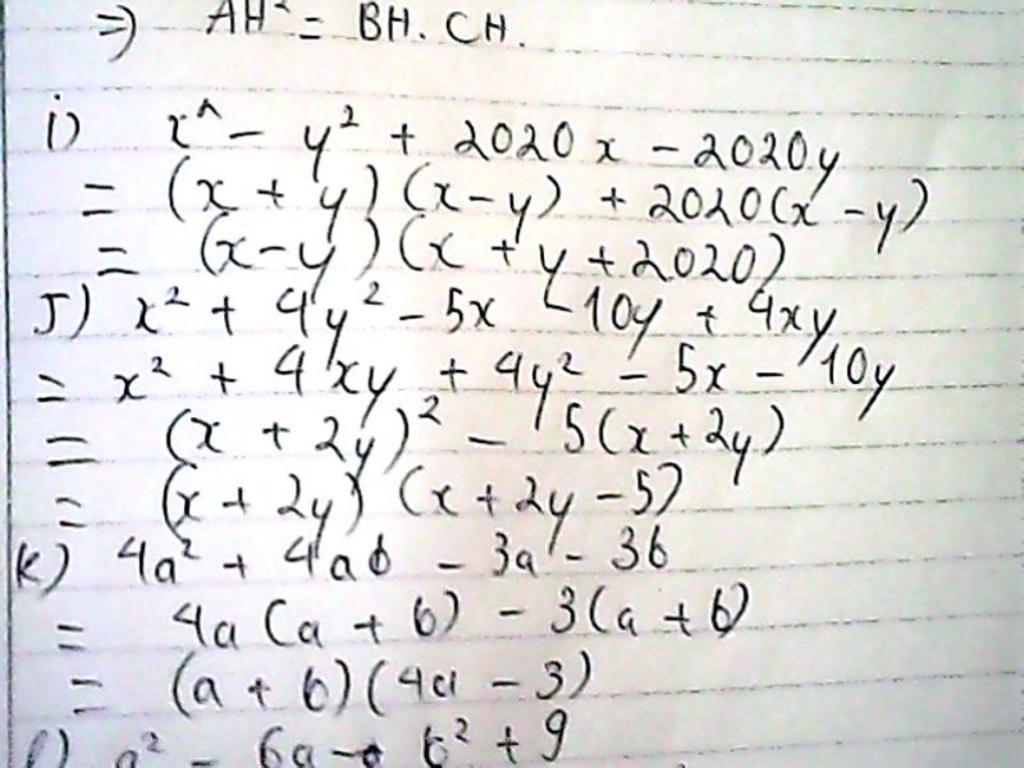 => AH² = BH. CH.
i) x^ - y² + 2020x - 2020y
= (x + y) (x-y) + 2020(x - y)
= (x-y) (x + y + 2020)
J) x² + 4y² - 5x - 10y + 4xy
= x² + 4xy + 4y² - 5x - 10y
= (x + 2y)² - 5(x + 2y)
= (x + 2y) (x + 2y - 5)
k) 4a² + 4ab - 3a - 3b
= 4a (a + b) - 3(a + b)
= (a + b) (4a - 3)
l) a² - 6a - b² + 9